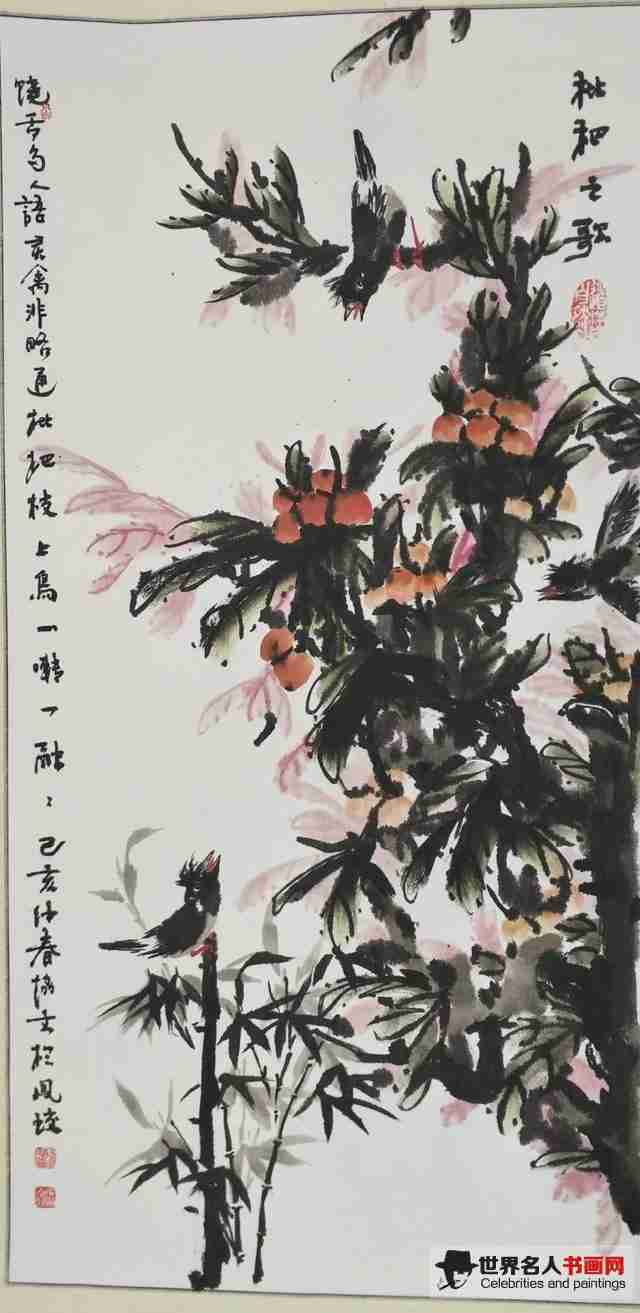 枇杷之歌
饶舌多人語 哀禽非略通 枇杷枝上鳥 一囀一融々 己亥仲春 於凤
世界名人书画网
Celebrities and paintings